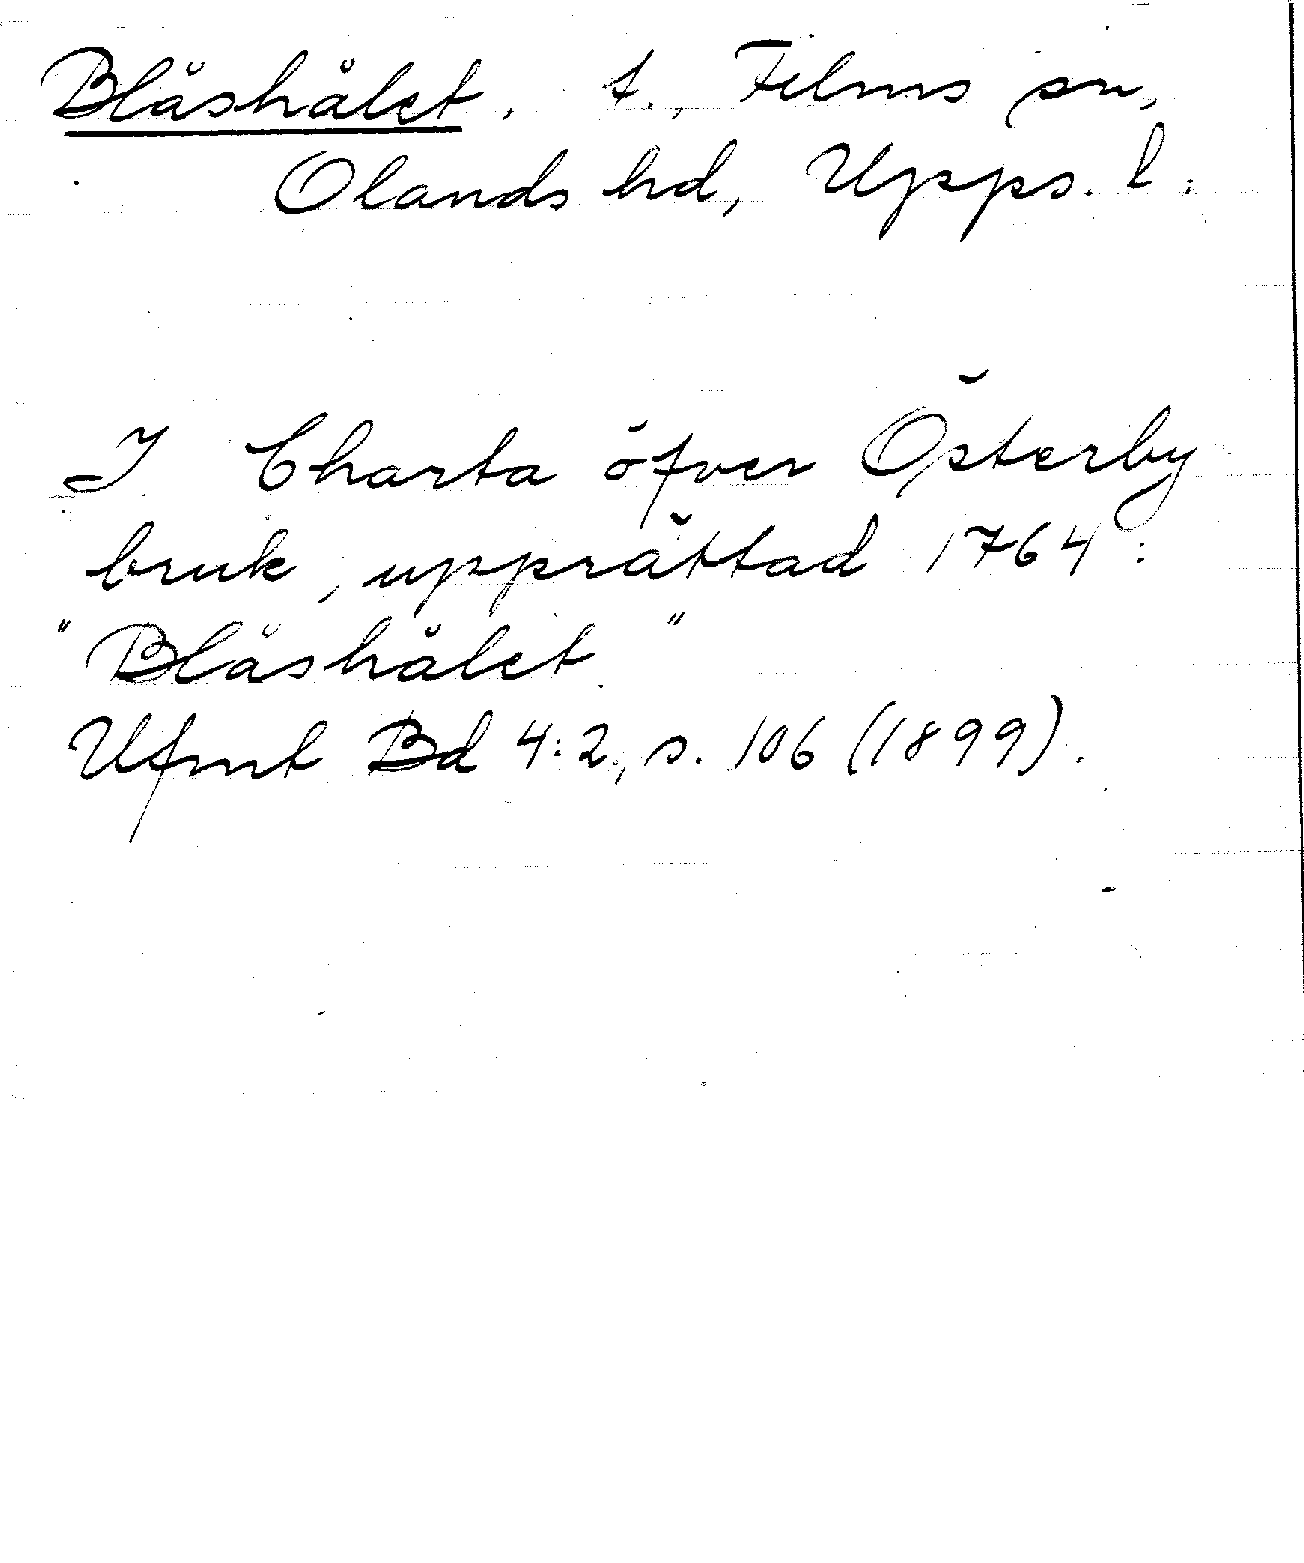 Blåshålet. t., Films sn,
Olands hd, Upps. l.
I Charta öfver Österby
bruk, upprättad 1764:
"Blåshålet"
Ufmt Bd 4:2, s. 106 (1899).